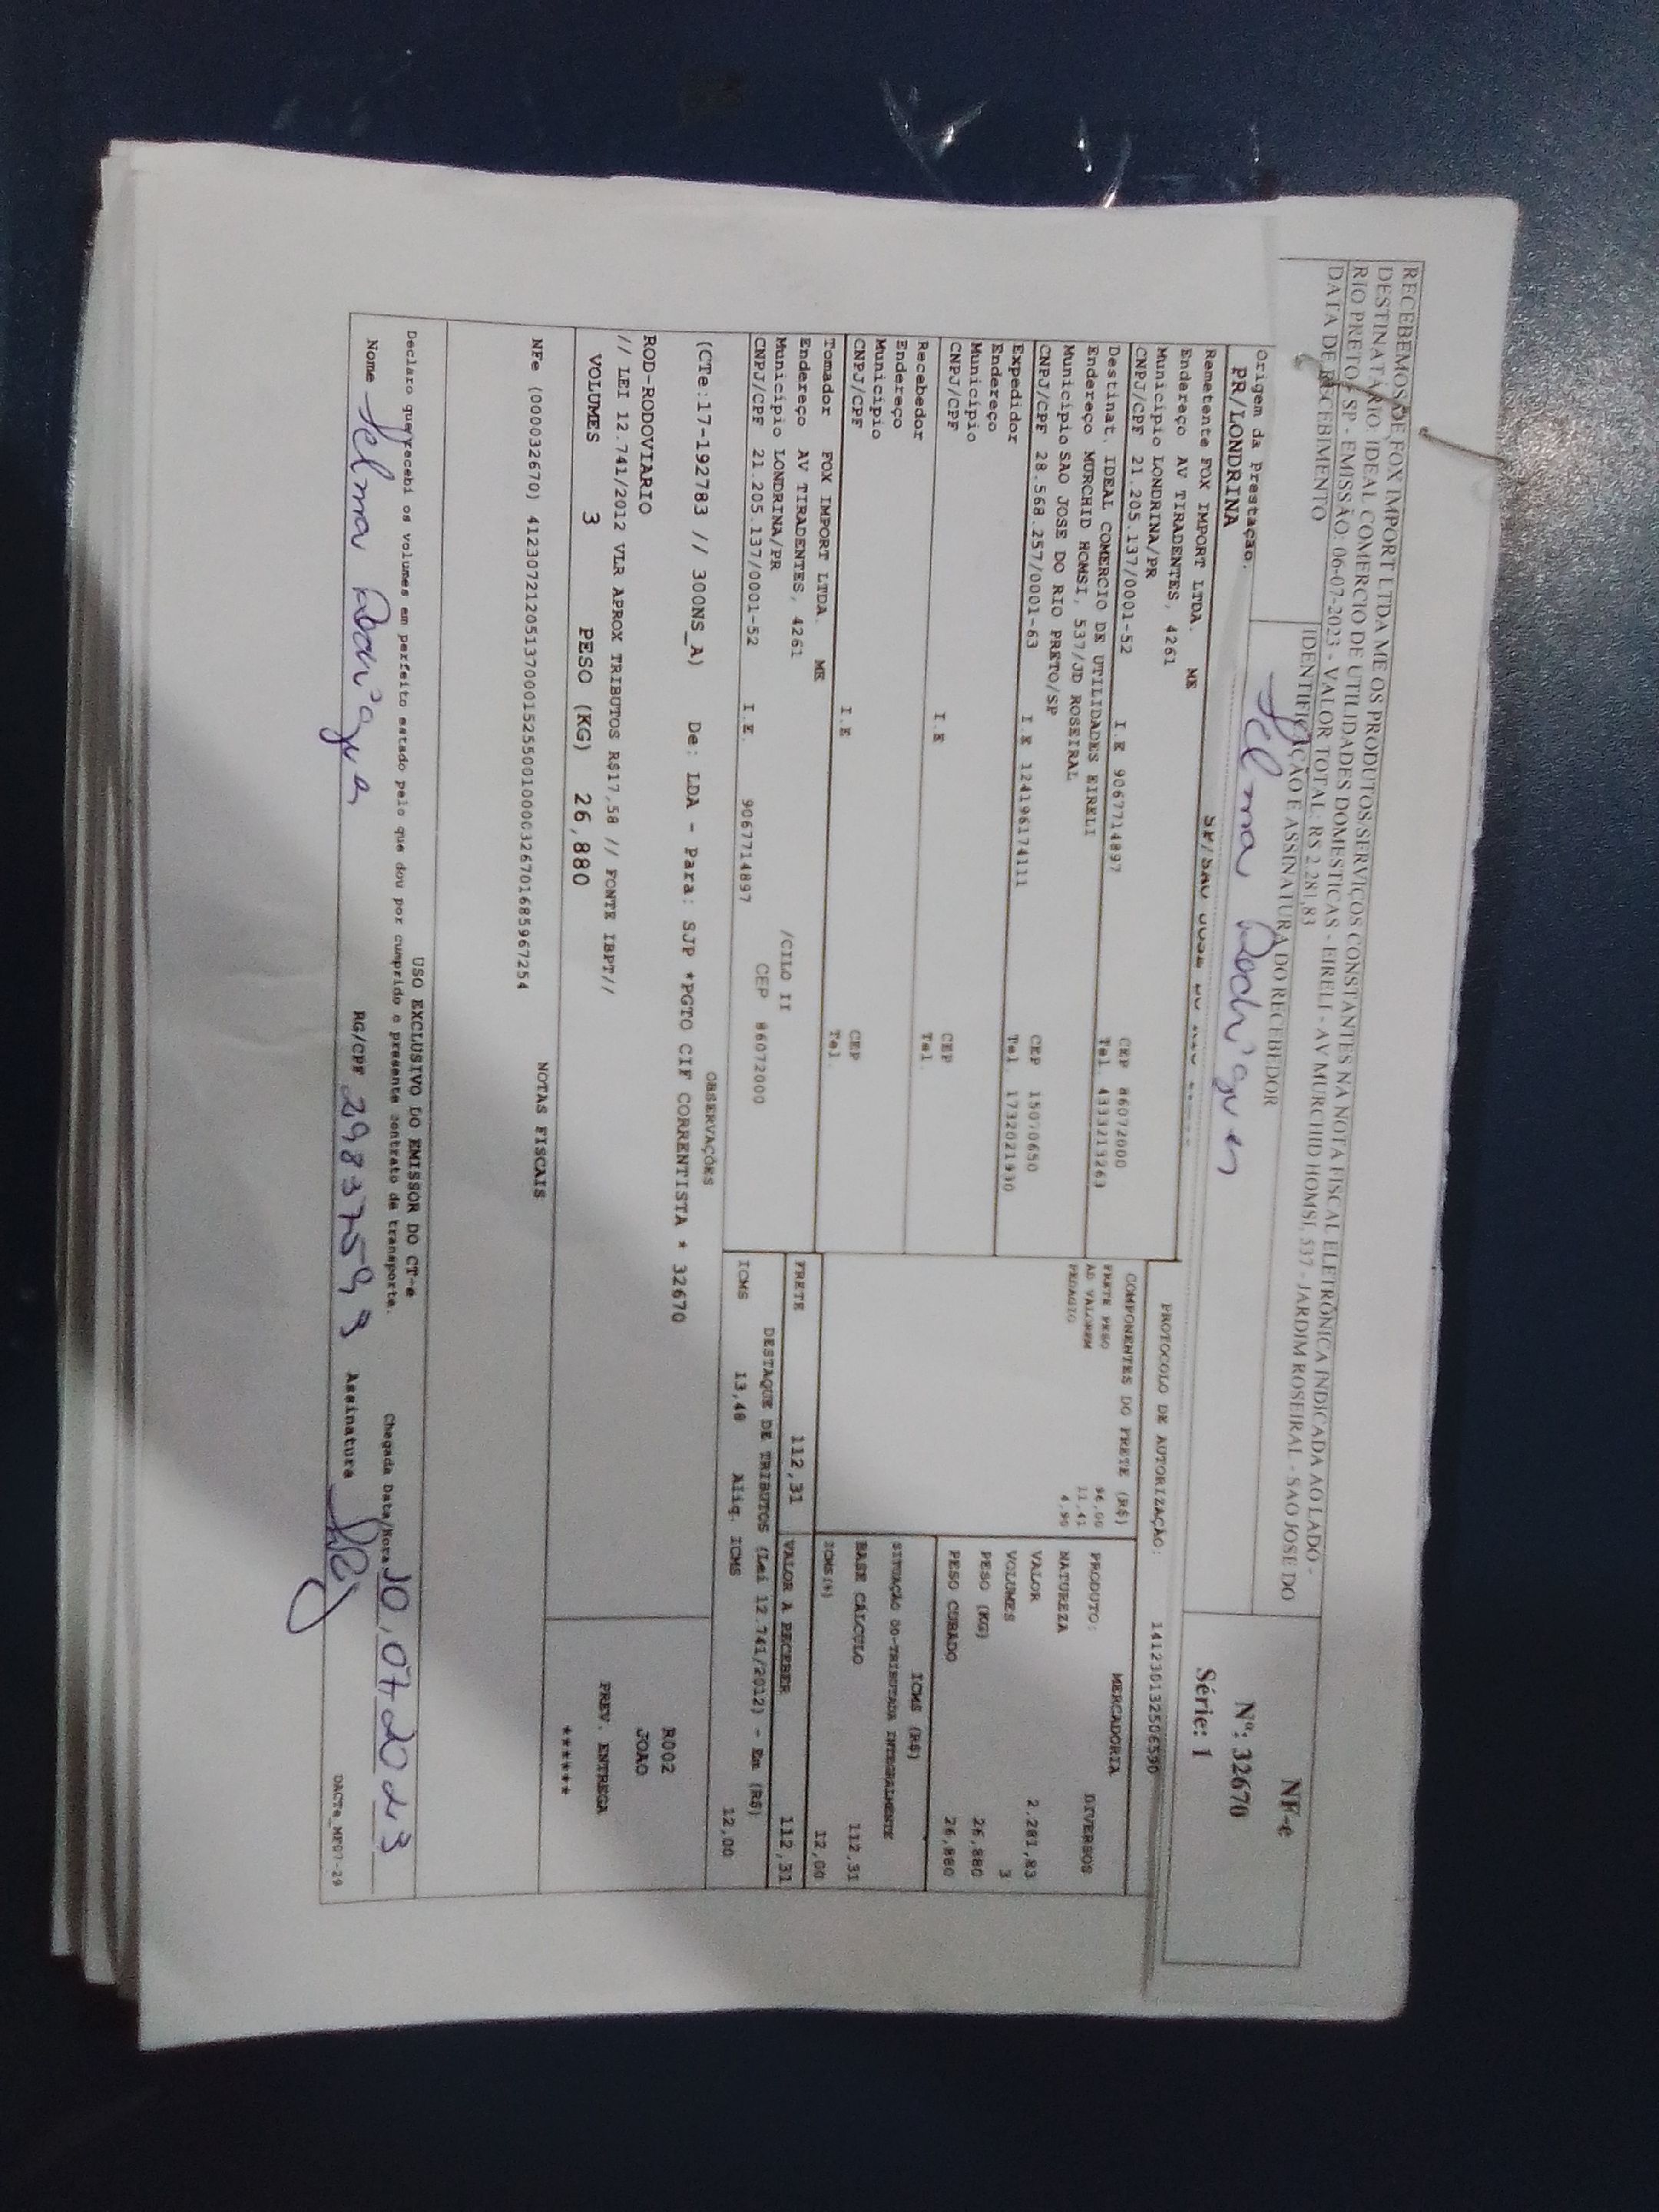 RECEBEMOS DE FOX IMPORT LTDA ME OS PRODUTOS/SERVIÇOS CONSTANTES NA NOTA FISCAL ELETRÔNICA INDICADA AO LADO -
DESTINATÁRIO: IDEAL COMERCIO DE UTILIDADES DOMESTICAS - EIRELI - AV MURCHID HOMSI, 537 - JARDIM ROSEIRAL - SAO JOSE DO
RIO PRETO/SP - EMISSÃO: 06-07-2023 - VALOR TOTAL: R$ 2.281,83
DATA DE RECEBIMENTO
IDENTIFICAÇÃO E ASSINATURA DO RECEBEDOR
NF-e
Nº: 32670
Série: 1
Origem da Prestação:
PR/LONDRINA
PROTOCOLO DE AUTORIZAÇÃO:
Remetente FOX IMPORT LTDA. ME
Endereço AV TIRADENTES, 4261
Município LONDRINA/PR CEP 86072000
CNPJ/CPF 21.205.137/0001-52 I.E 9067714897 Tel. 4333213263
Destinat. IDEAL COMERCIO DE UTILIDADES EIRELI
Endereço MURCHID HOMSI, 537/JD ROSEIRAL
Município SAO JOSE DO RIO PRETO/SP CEP 15070650
CNPJ/CPF 28.568.257/0001-63 I.E 124196174111 Tel. 1732021930
Expedidor
Endereço
Município CEP
CNPJ/CPF I.E Tel.
Recebedor
Endereço
Município CEP
CNPJ/CPF I.E Tel.
Tomador FOX IMPORT LTDA. ME
Endereço AV TIRADENTES, 4261 /CILO II
Município LONDRINA/PR CEP 86072000
CNPJ/CPF 21.205.137/0001-52 I.E. 9067714897
COMPONENTES DO FRETE (R$)
FRETE PESO 96,00
AD VALOREM 11,41
PEDAGIO 4,90
MERCADORIA
PRODUTO: DIVERSOS
NATUREZA
VALOR 2.281,83
VOLUMES 3
PESO (KG) 26,880
PESO CUBADO 26,880
ICMS (R$)
SITUAÇÃO 00-TRIBUTADA INTEGRALMENTE
BASE CÁLCULO 112,31
ICMS(%) 12,00
FRETE 112,31 VALOR A RECEBER 112,31
DESTAQUE DE TRIBUTOS (Lei 12.741/2012) - Em (R$)
ICMS 13,48 Aliq. ICMS 12,00
OBSERVAÇÕES
(CTe:17-192783 // 300NS_A) De: LDA - Para: SJP *PGTO CIF CORRENTISTA * 32670
ROD-RODOVIARIO
// LEI 12.741/2012 VLR APROX TRIBUTOS R$17,58 // FONTE IBPT//
VOLUMES 3 PESO (KG) 26,880
R002
JOAO
PREV. ENTREGA
******
NOTAS FISCAIS
NFe (000032670) 41230721205137000152550010000326701685967254
USO EXCLUSIVO DO EMISSOR DO CT-e
Declaro que recebi os volumes em perfeito estado pelo que dou por cumprido o presente contrato de transporte.
Chegada Data/Hora 10,07 2023
Nome Selma Rodrigues RG/CPF Assinatura
DACTe_MF07-29